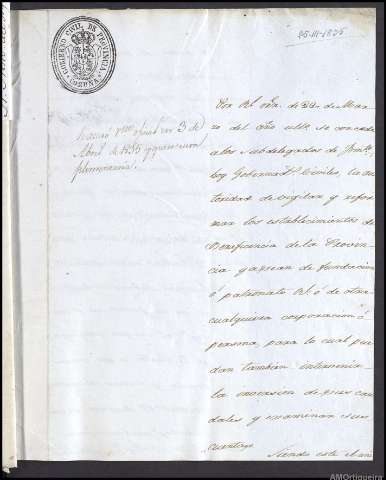 GOBIERNO CIVIL DE PROVINCIA
CORUÑA
25-III-1835
en 3 de
Abril de 1835
Por Rl. orn. de 22 de Mar
zo del año ult. se concede
a los Subdelegados de Fom.to
hoy Gobernad.s Civiles, la au
toridad de vigilar y refor
mar los establecimientos de
Beneficencia de la Provin
cia ya sean de fundacion
ó patronato Rl. ó de otra
cualquiera corporacion ó
persona, para lo cual pue
dan tambien intervenir
la inversion de sus cau
dales y examinar sus
cuentas.
Siendo este el
AMOrtigueira